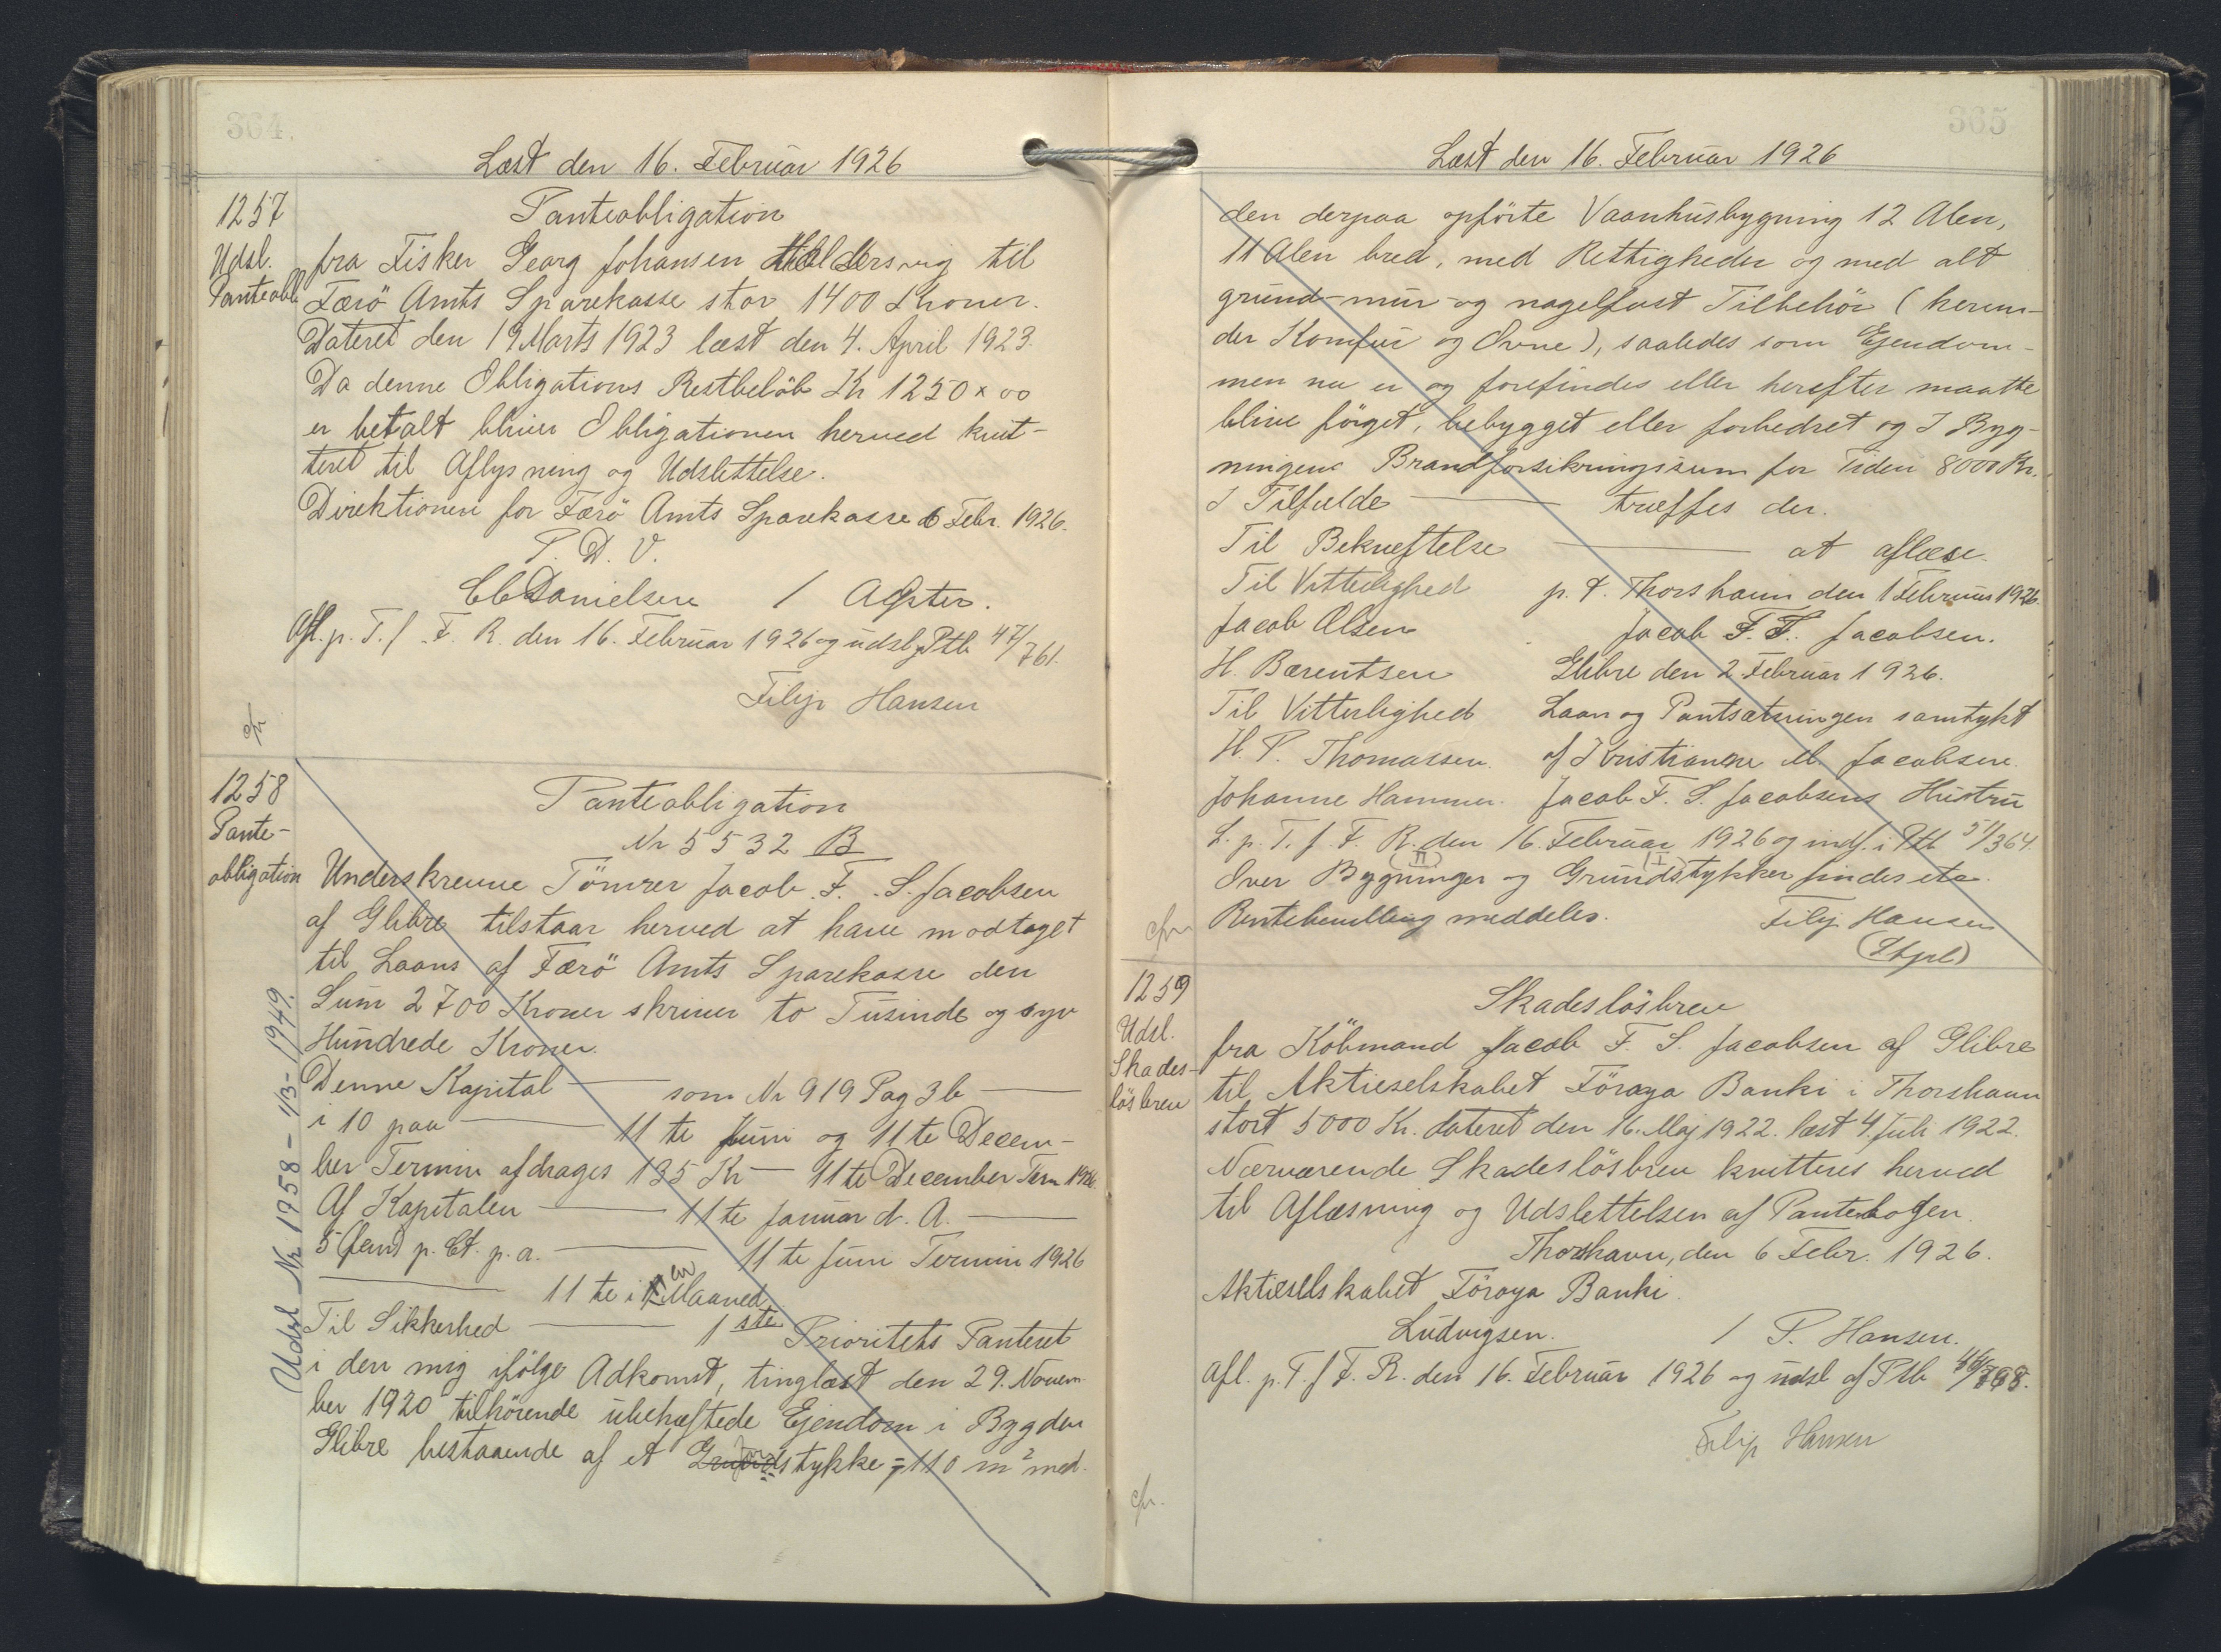 364.
Læst den 16. Februar 1926
1257
Udsl.
Panteobl.
Panteobligation
fra Fisker Georg Johansen Haldersvig til
Færö Amts Sparekasse stor 1400 Kroner.
Dateret den 19 Marts 1923 læst den 4. April 1923.
Da denne Obligations Restbelöb Kr 1250 × 00
er betalt bliver Obligationen herved kvit-
teret til Aflysning og Udslettelse.
Direktionen for Færö Amts Sparekasse d 6 Febr. 1926.
P. D. V.
CC Danielsen / 
Afl. p. T. f. F. R. den 16. Februar 1926 og udsl af Ptb 47/761.
Filip Hansen
cfr
1258
Pante-
obligation
Panteobligation
Nr 5532 B
Underskrevne Tömrer Jacob F. S. Jacobsen
af Glibre tilstaar herved at have modtaget
til Laans af Færö Amts Sparekasse den
Sum 2700 Kroner skriver to Tusinde og syv
Hundrede Kroner.
Denne Kapital — som Nr 919 Pag 36 —
i 10 paa — 11te Juni og 11te Decem-
ber Termin afdrages 135 Kr — 11te December Term 1926.
Af Kapitalen — 11te Januar d. A. —
5 (fem) p. Ct. p. a. — 11te Juni Termin 1926
— 11te i en Maaned
Til Sikkerhed — 1ste Prioritets Panteret
i den mig ifölge Adkomst, tinglæst den 29. Novem-
ber 1920 tilhørende ubehæftede Ejendom i Bygden
Glibre bestaaende af et Grundstykke = 110 m² med
Udsl Nr. 1958 - 1/3 - 1949.
365
Læst den 16. Februar 1926
den derpaa opförte Vaanhusbygning 12 Alen,
11 Alen bred, med Rettigheder og med alt
grund- mur- og nagelfast Tilbehör (herun-
der Komfur og Ovne), saaledes som Ejendom-
men nu er og forefindes eller herefter maatte
blive föröget, bebygget eller forbedret og I Byg-
ningens Brandforsikringssum for Tiden 8000 Kr.
I Tilfælde — træffes der.
Til Bekræftelse — at aflæse.
Til Vitterlighed p. t. Thorshavn den 1 Februar 1926.
Jacob Olsen Jacob F. S. Jacobsen.
H. Bærentsen Glibre den 2. Februar 1926.
Til Vitterlighed Laan og Pantsætningen samtykt
H. P. Thomassen. af Kristianne M. Jacobsen.
Johanne Hammer. Jacob F. S. Jacobsens Hustru
L. p. T. f. F. R. den 16. Februar 1926 og indf. i Ptb 51/364.
Over Bygninger (II) og Grundstykker (I) findes etc.
Rentebevilling meddeles. Filip Hansen
cfr
1259
Udsl.
Skades-
lösbrev
Skadeslösbrev
fra Köbmand Jacob F. S. Jacobsen af Glibre
til Aktieselskabet Föroya Banki i Thorshavn
stort 5000 Kr. dateret den 16. Maj 1922. læst 4. Juli 1922.
Nærværende Skadeslösbrev kvitteres herved
til Aflæsning og Udslettelsen af Pantebogen.
Thorshavn, den 6 Febr. 1926.
Aktieselskabet Föroya Banki.
Ludvigsen. / P. Hansen.
Afl. p. T. f. F. R. den 16. Februar 1926 og udsl af Ptb 46/768.
Filip Hansen
cfr.